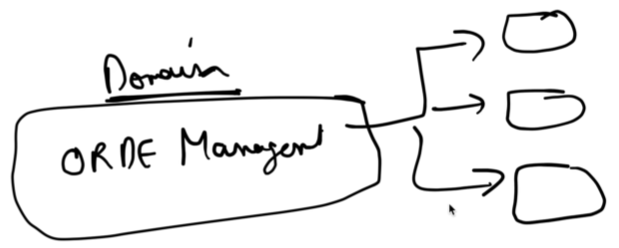 Domain
ORDE Managent